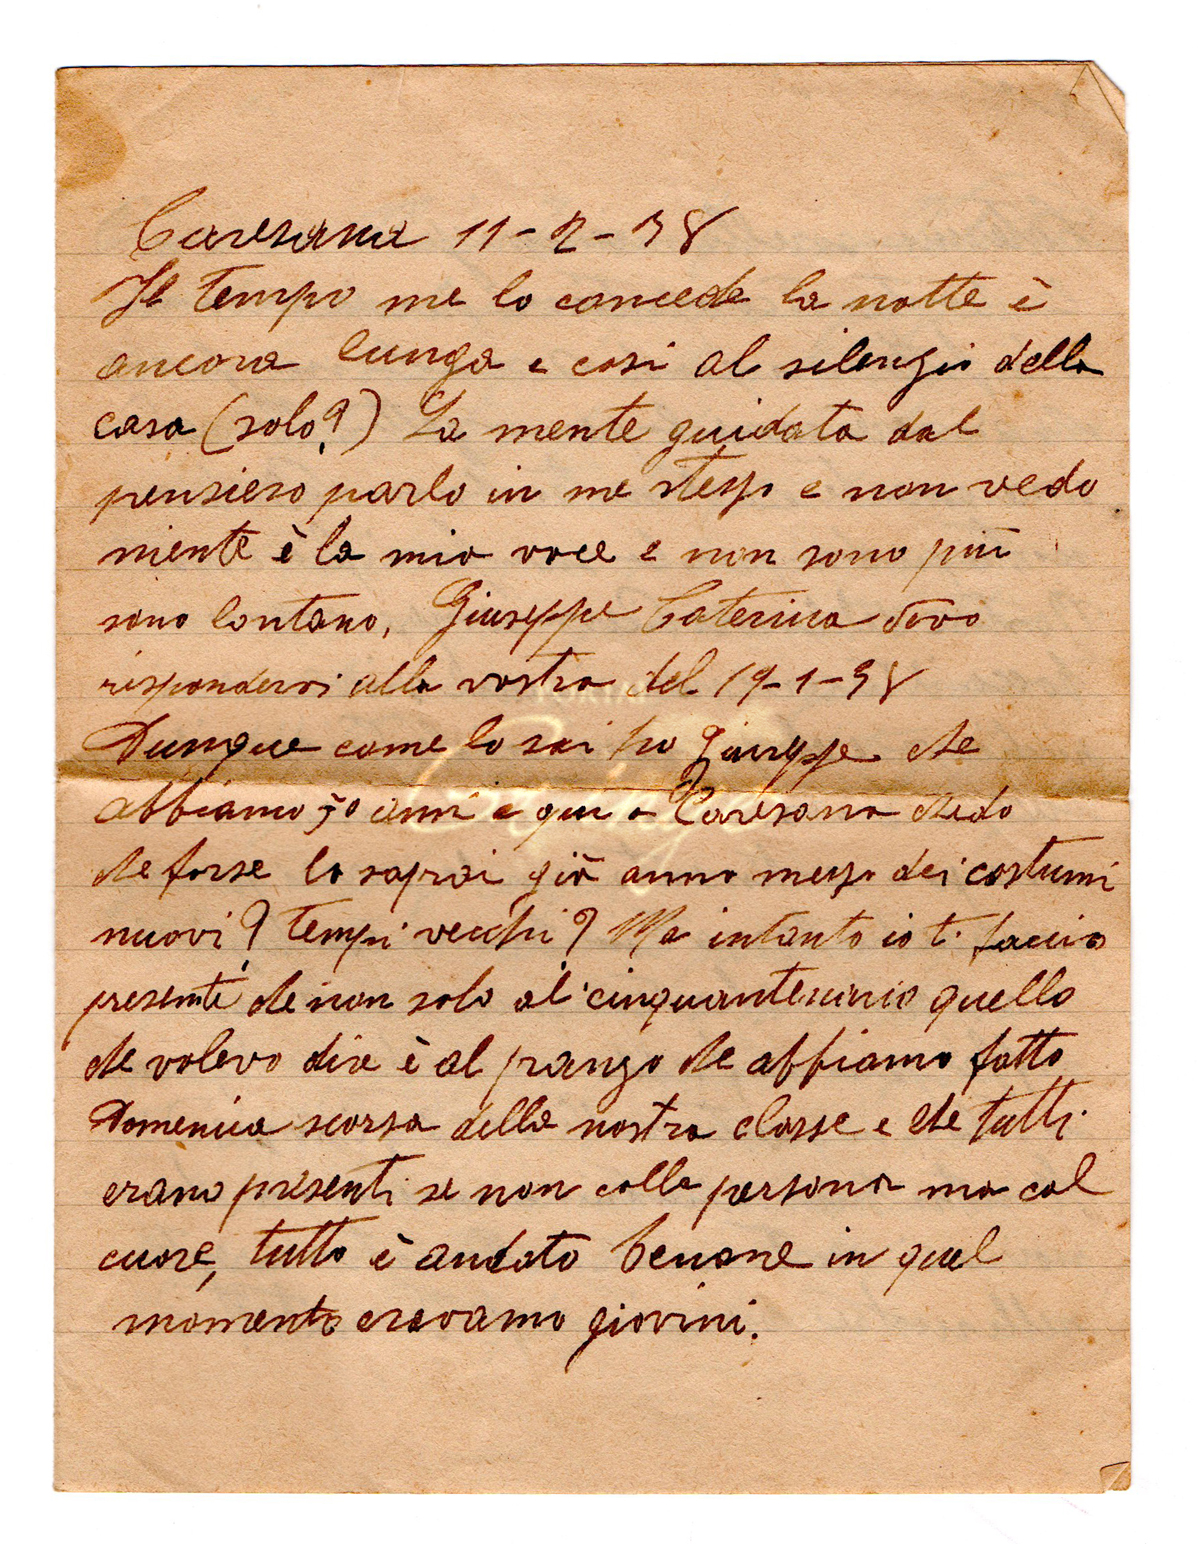 Caresana 11-2-38
Il tempo me lo concede la notte è
ancora lunga e cosi al silenzio della
casa (solo?) La mente guidata dal
pensiero parlo in me stesso e non vedo
niente è la mia voce e non sono più
sono lontano, Giuseppe Caterina devo
rispondervi alla vostra del 19-1-38
Dunque come lo sai tu Giuseppe che
abbiamo 50 anni e qui a Caresana chedo
che forse lo saprai già anno messo dei costumi
nuovi? tempi vecchi? Ma intanto io ti faccio
presente che non solo al cinquantenario quello
che volevo dire è al pranzo che abbiamo fatto
Domenica scorsa della nostra classe e che tutti
erano presenti se non colla persona ma col
cuore, tutto è andato benone in quel
momento eravamo giovini.